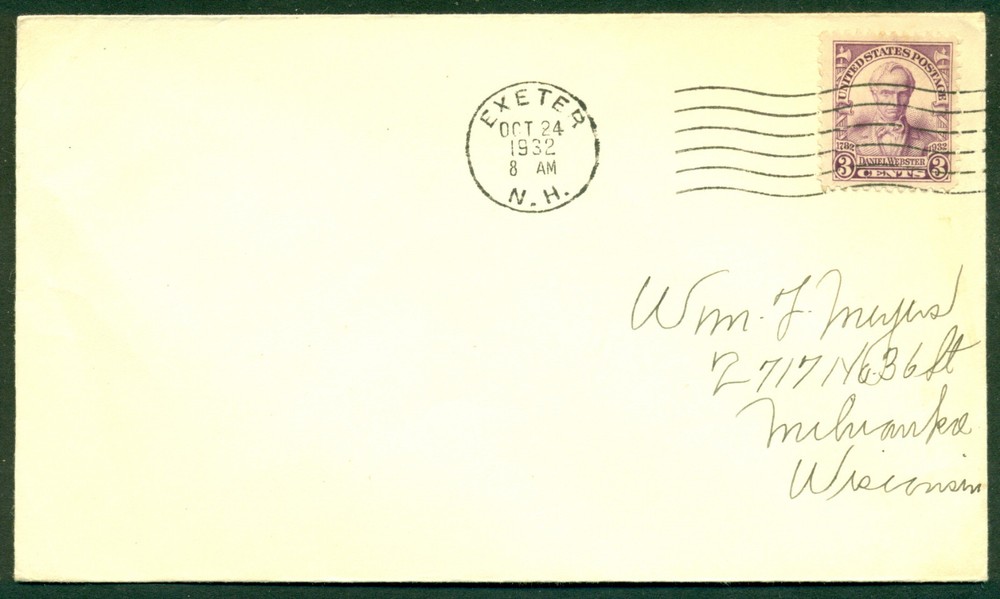 EXETER
OCT 24
1932
8 AM
N.H.
UNITED STATES POSTAGE
1782 1932
DANIEL WEBSTER
3 CENTS 3
Wm. F. Meyers
2717 No. 36 St
Milwaukee
Wisconsin